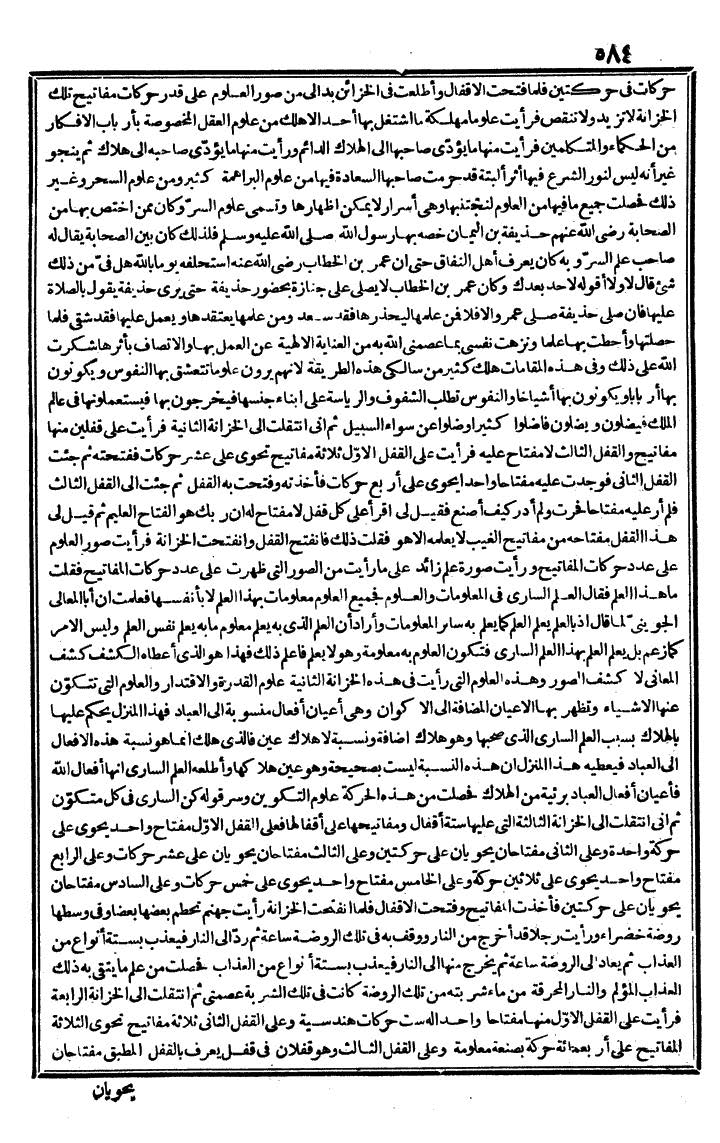 ٥٨٤
حركات فى حركتين فلما فتحت الاقفال وأطلعت فى الخزائن بدا لى من صور العلوم على قدر حركات مفاتيح تلك
الخزانة لا تزيد ولا تنقص فرأيت علوما مهلكة ما اشتغل بها أحد الا هلك من علوم العقل المخصوصة بأرباب الافكار
من الحكماء والمتكلمين فرأيت منها ما يؤدّى صاحبها الى الهلاك الدائم ورأيت منها ما يؤدّى صاحبه الى هلاك ثم ينجو
غير أنه ليس لنور الشرع فيها أثر ألبتة قد حرمت صاحبها السعادة فيها من علوم البراهمة كثير ومن علوم السحر وغير
ذلك فحصلت جميع ما فيها من العلوم لنجتنبها وهى أسرار لا يمكن اظهارها وتسمى علوم السرّ وكان ممن اختص بها من
الصحابة رضى الله عنهم حذيفة بن اليمان خصه بها رسول الله صلى الله عليه وسلم فلذلك كان بين الصحابة يقال له
صاحب علم السرّ وبه كان يعرف أهل النفاق حتى ان عمر بن الخطاب رضى الله عنه استحلفه يوما بالله هل فىّ من ذلك
شئ قال لا ولا أقوله لاحد بعدك وكان عمر بن الخطاب لا يصلى على جنازة بحضور حذيفة حتى يرى حذيفة يقول بالصلاة
عليها فان صلى حذيفة صلى عمر والا فلا فمن علمها ليحذرها فقد سعد ومن علمها يعتقدها ويعمل عليها فقد شقى فلما
حصلتها وأحطت بها علما ونزهت نفسى بما عصمنى الله به من العناية الالهية عن العمل بها والاتصاف بأثرها شكرت
الله على ذلك وفى هذه المقامات هلك كثير من سالكى هذه الطريقة لانهم يرون علوما تتعشق بها النفوس ويكونون
بها أربابا ويكونون بها أشياخا والنفوس تطلب الشفوف والرياسة على ابناء جنسها فيخرجون بها فيستعملونها فى عالم
الملك فيضلون ويضلون فاضلوا كثيرا وضلوا عن سواء السبيل ثم انى انتقلت الى الخزانة الثانية فرأيت على قفلين منها
مفاتيح والقفل الثالث لا مفتاح عليه فرأيت على القفل الاوّل ثلاثة مفاتيح تحوى على عشر حركات ففتحته ثم جئت
القفل الثانى فوجدت عليه مفتاحا واحدا يحوى على أربع حركات فأخذته وفتحت به القفل ثم جئت الى القفل الثالث
فلم أر عليه مفتاحا فحرت ولم أدر كيف أصنع فقيل لى اقرأ على كل قفل لا مفتاح له ان ربك هو الفتاح العليم ثم قيل لى
هذا القفل مفتاحه من مفاتيح الغيب لا يعلمه الا هو فقلت ذلك فانفتح القفل وانفتحت الخزانة فرأيت صور العلوم
على عدد حركات المفاتيح ورأيت صورة علم زائد على ما رأيت من الصور التى ظهرت على عدد حركات المفاتيح فقلت
ما هذا العلم فقال العلم السارى فى المعلومات والعلوم فجميع العلوم معلومات بهذا العلم لا بأنفسها فعلمت ان أبا المعالى
الجوينىّ لما قال اذ بالعلم يعلم العلم كما يعلم به سائر المعلومات وأراد أن العلم الذى به يعلم معلوم ما به يعلم نفس العلم وليس الامر
كما زعم بل يعلم العلم بهذا العلم السارى فتكون العلوم به معلومة وهو لا يعلم فاعلم ذلك فهذا هو الذى أعطاه الكشف كشف
المعانى لا كشف الصور وهذه العلوم التى رأيت فى هذه الخزانة الثانية علوم القدرة والاقتدار والعلوم التى تتكوّن
عنها الاشياء وتظهر بها الاعيان المضافة الى الا كوان وهى أعيان أفعال منسوبة الى العباد فهذا المنزل يحكم عليها
بالهلاك بسبب العلم السارى الذى صحبها وهو هلاك اضافة ونسبة لا هلاك عين فالذى هلك انما هو نسبة هذه الافعال
الى العباد فيعطيه هذا المنزل ان هذه النسبة ليست بصحيحة وهو عين هلا كها وأطلعه العلم السارى انها أفعال الله
فأعيان أفعال العباد بريئة من الهلاك فحصلت من هذه الحركة علوم التكوين وسر قوله كن السارى فى كل متكوّن
ثم انى انتقلت الى الخزانة الثالثة التى عليها ستة أقفال ومفاتيحها على أقفالها فعلى القفل الاوّل مفتاح واحد يحوى على
حركة واحدة وعلى الثانى مفتاحان يحويان على حركتين وعلى الثالث مفتاحان يحويان على عشر حركات وعلى الرابع
مفتاح واحد يحوى على ثلاثين حركة وعلى الخامس مفتاح واحد يحوى على خمس حركات وعلى السادس مفتاحان
يحويان على حركتين فأخذت المفاتيح وفتحت الاقفال فلما انفتحت الخزانة رأيت جهنم تحطم بعضها بعضا وفى وسطها
روضة خضراء ورأيت رجلا قد أخرج من النار ووقف به فى تلك الروضة ساعة ثم ردّ الى النار فيعذب بستة أنواع من
العذاب ثم يعاد الى الروضة ساعة ثم يخرج منها الى النار فيعذب بستة أنواع من العذاب فحصلت من علم ما يتقى به ذلك
العذاب المؤلم والنار المحرقة من ماء شربته من تلك الروضة كانت فى تلك الشربة عصمتى ثم انتقلت الى الخزانة الرابعة
فرأيت على القفل الاوّل منها مفتاحا واحدا له ست حركات هندسية وعلى القفل الثانى ثلاثة مفاتيح تحوى الثلاثة
المفاتيح على أربعمائة حركة بصنعة معلومة وعلى القفل الثالث وهو قفلان فى قفل يعرف بالقفل المطبق مفتاحان
يحويان